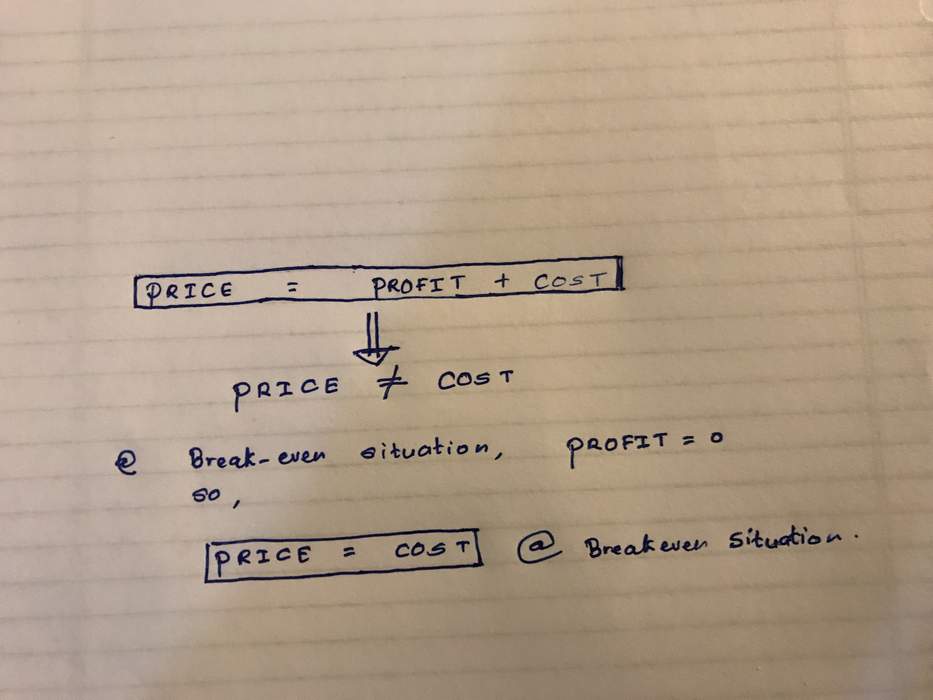 PRICE = PROFIT + COST
⇓
PRICE ≠ COST
@ Break-even situation, PROFIT = 0
so,
PRICE = COST @ Breakeven Situation.